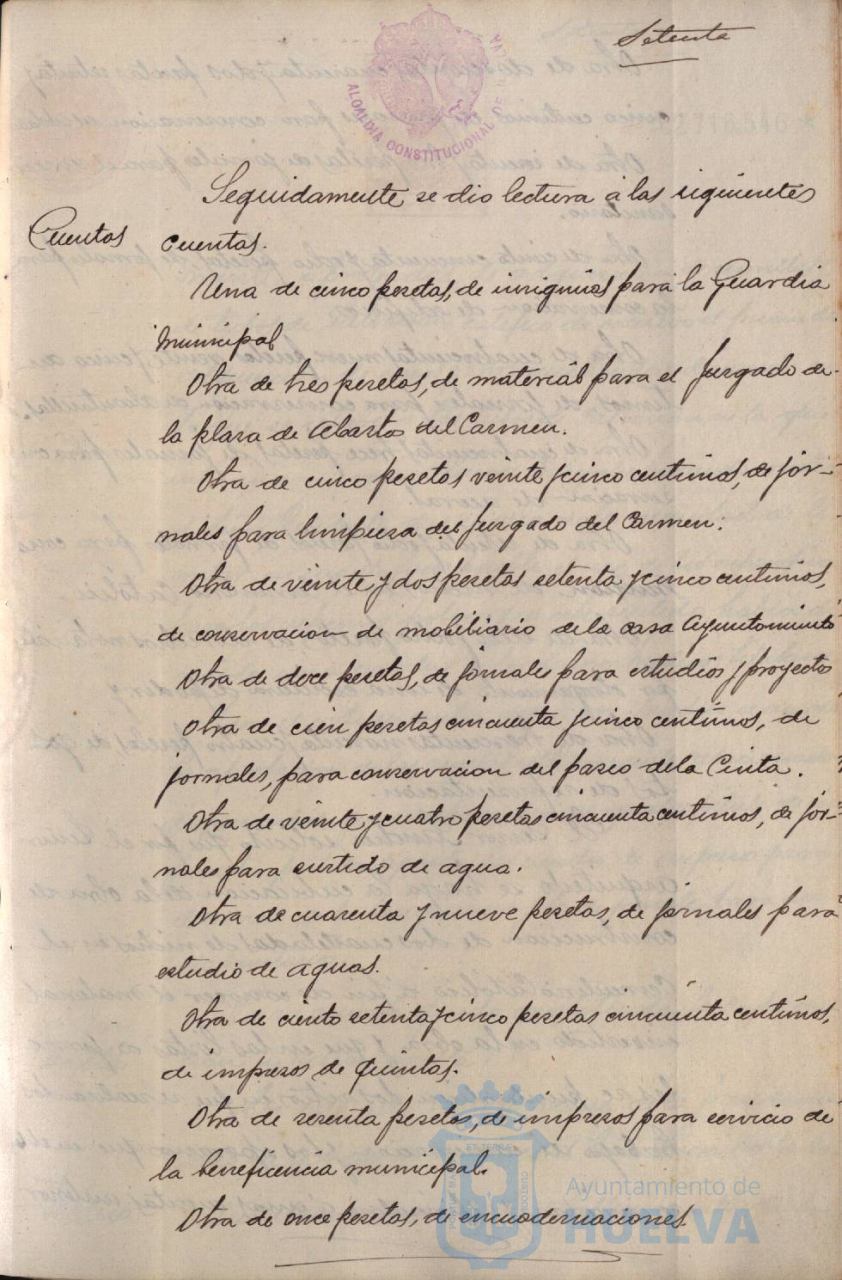 Setenta
ALCALDIA CONSTITUCIONAL DE
Seguidamente se dio lectura á las siguientes
Cuentas
cuentas.
Una de cinco pesetas, de insignias para la Guardia
Municipal
Otra de tres pesetas, de material para el Juzgado de
la plaza de Abastos del Carmen.
Otra de cinco pesetas veinte y cinco centimos, de jor-
nales para limpieza del Juzgado del Carmen.
Otra de veinte y dos pesetas setenta y cinco centimos,
de conservacion de mobiliario de la casa Ayuntamiento
Otra de doce pesetas, de jornales para estudios y proyecto
Otra de cien pesetas cincuenta y cinco centimos, de
jornales, para conservacion del paseo de la Cinta.
Otra de veinte y cuatro pesetas cincuenta centimos, de jor-
nales para surtido de agua.
Otra de cuarenta y nueve pesetas, de jornales para
estudio de aguas.
Otra de ciento setenta y cinco pesetas cincuenta centimos,
de impresos de Quintas.
Otra de sesenta pesetas, de impresos para servicio de
la beneficencia municipal.
Otra de once pesetas, de encuadernaciones
Ayuntamiento de
HUELVA